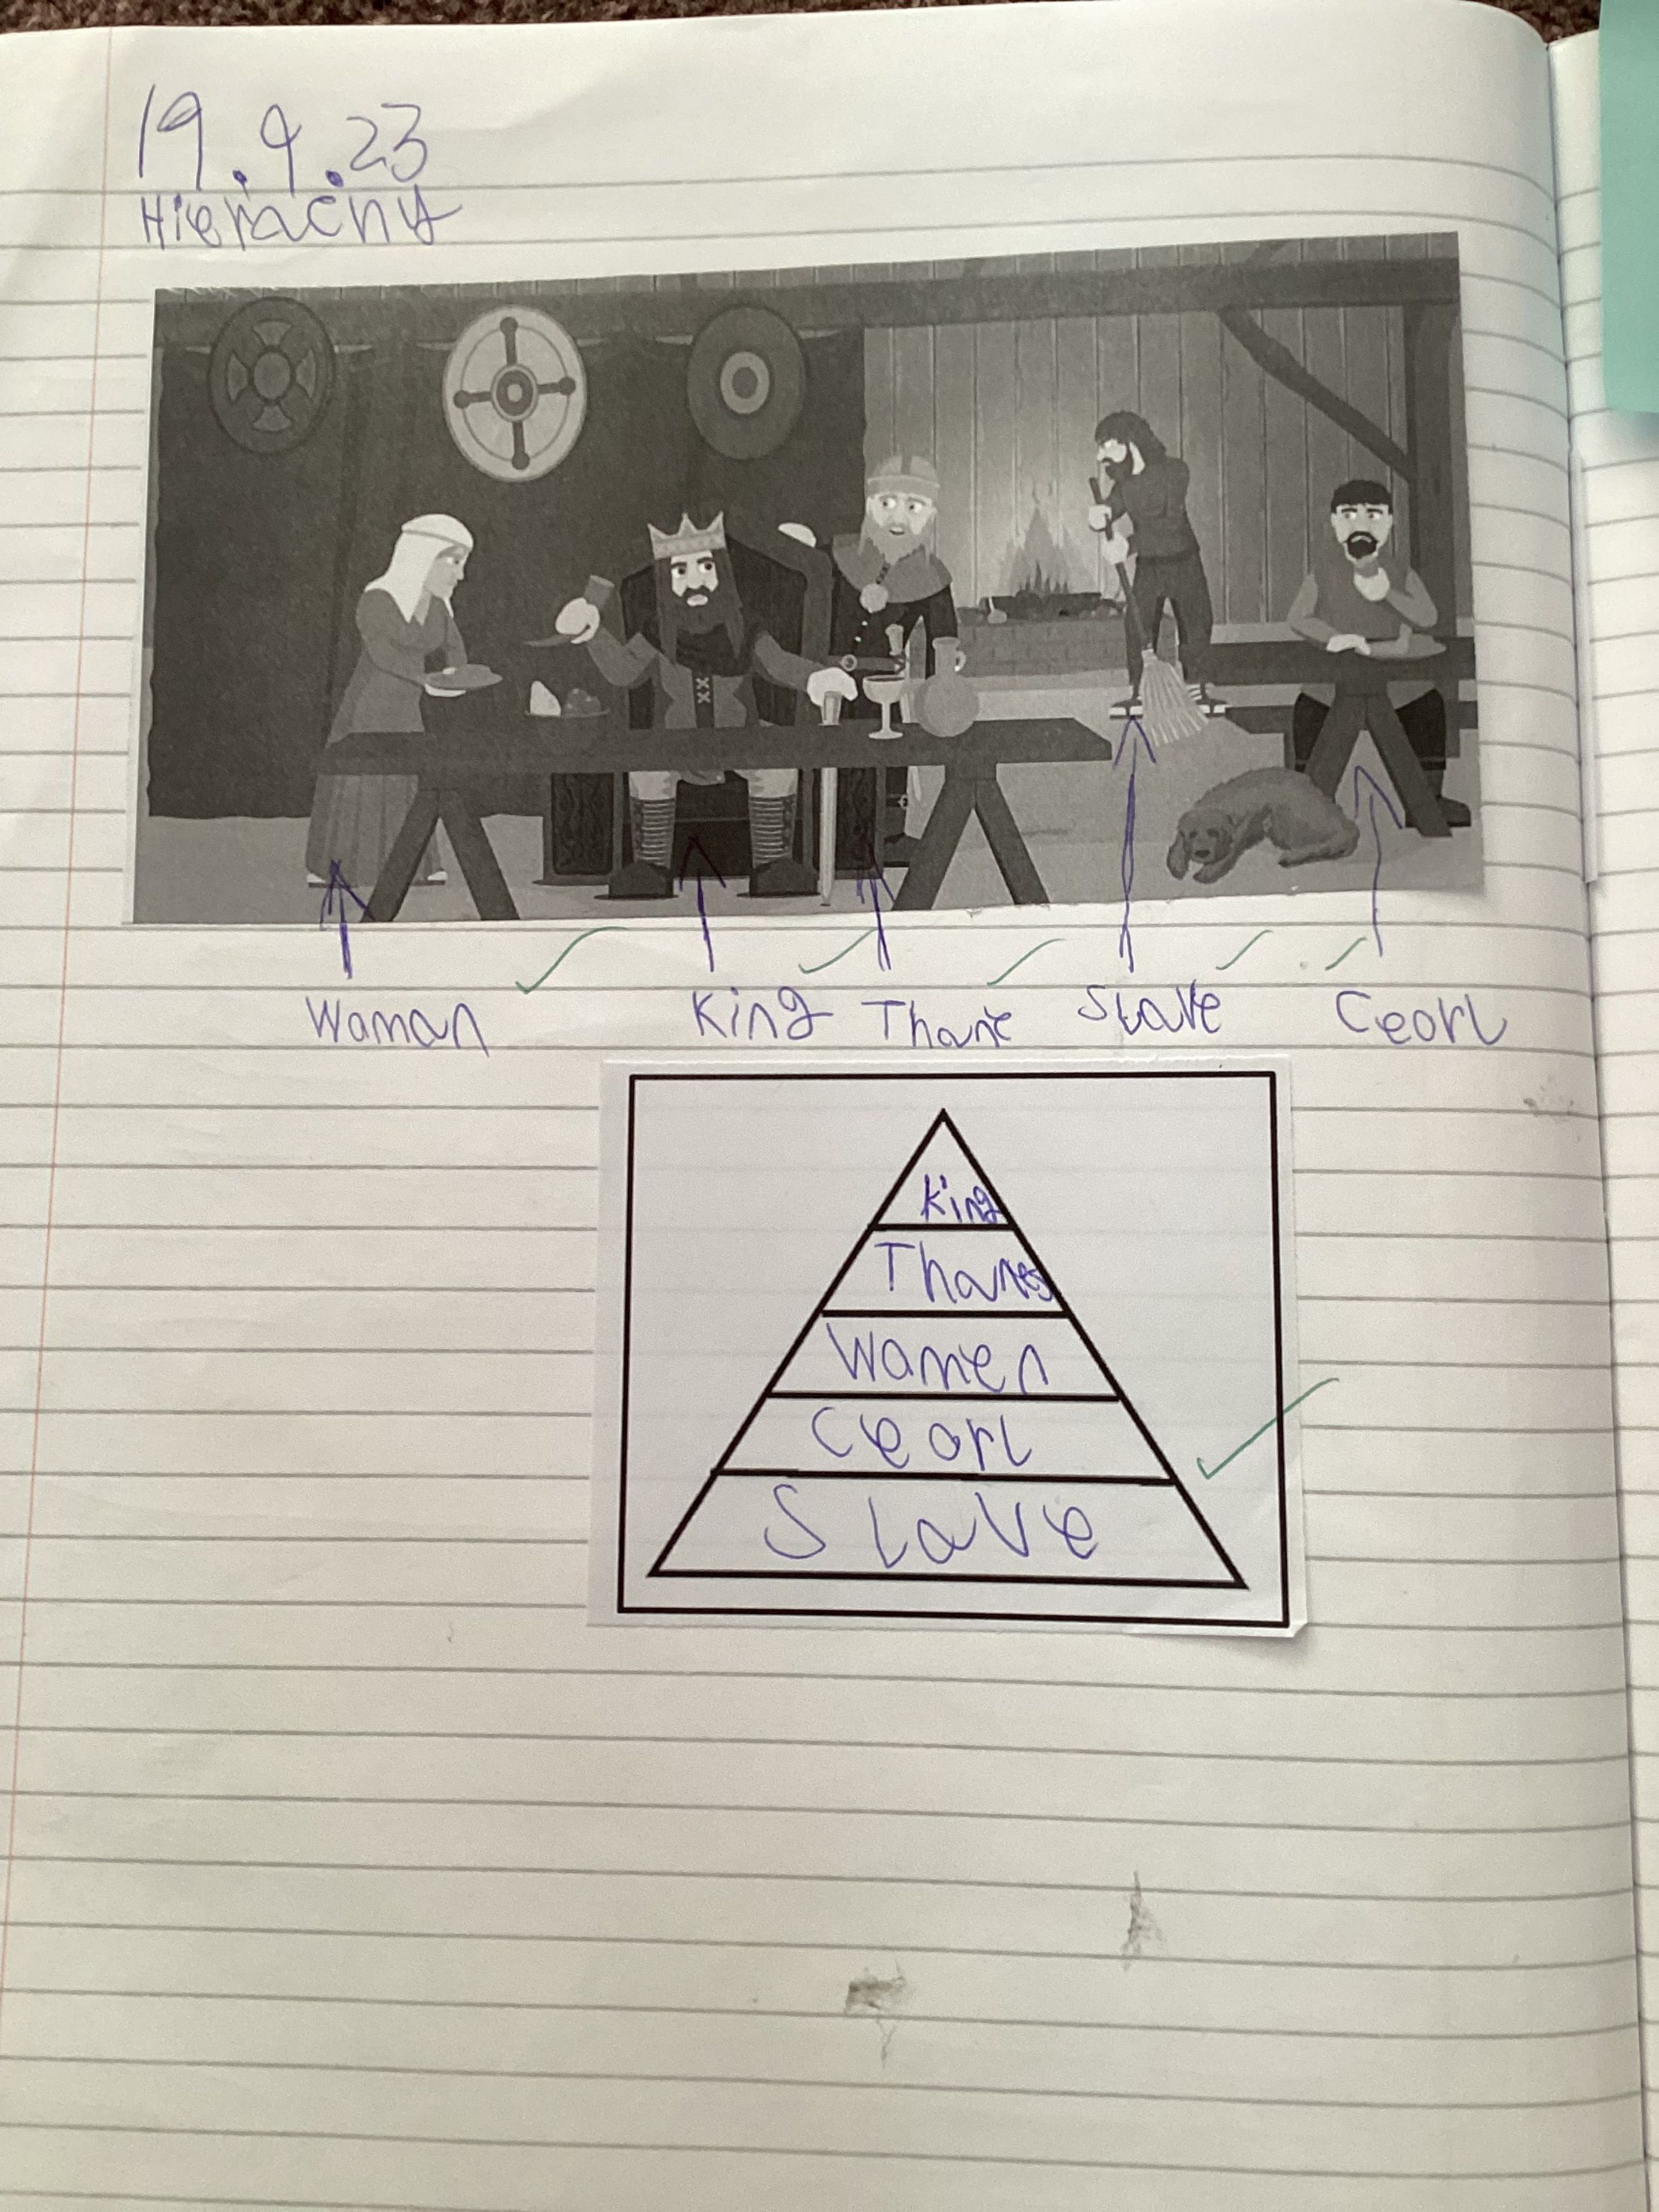 19.9.23
Hierachy
Waman King Thane Slave Ceorl
King
Thanes
Wamen
Ceorl
Slave